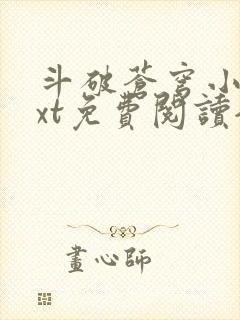 斗破蒼穹小
xt免費閱讀
畫心師